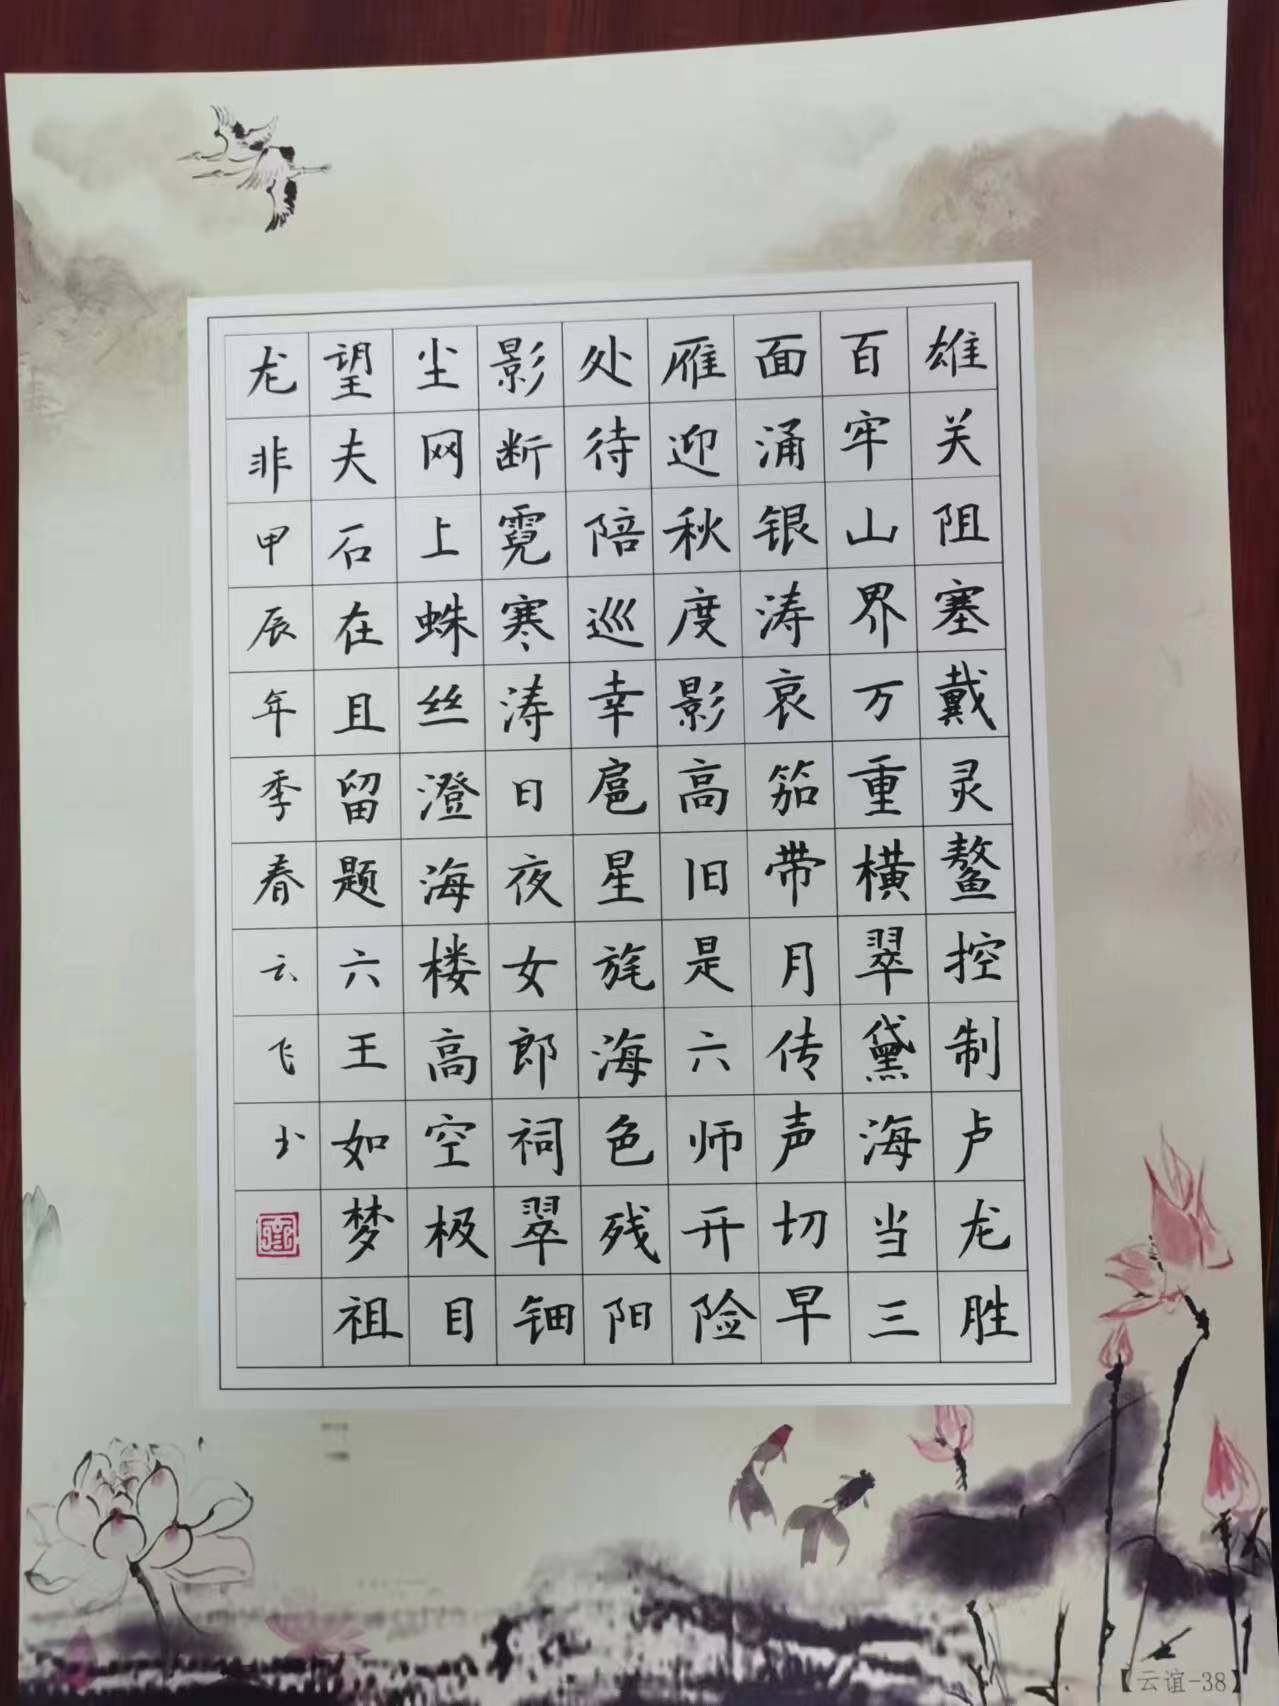 雄关阻塞戴灵鳌控制卢龙胜
百牢山界万重横翠黛海当三
面涌银涛哀笳带月传声切早
雁迎秋度影高旧是六师开险
处待陪巡幸扈星旄海色残阳
影断霓寒涛日夜女郎祠翠钿
尘网上蛛丝澄海楼高空极目
望夫石在且留题六王如梦祖
龙非甲辰年季春云飞书
【云谊-38】